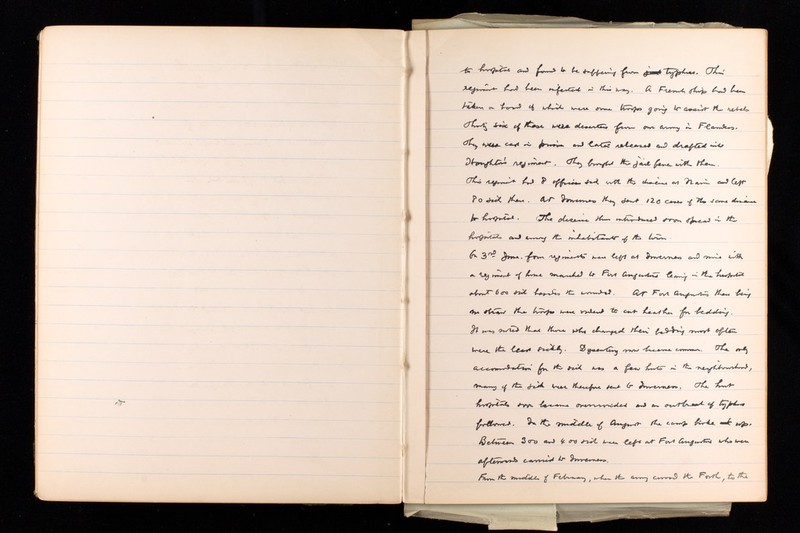 to hospital and found to be suffering from typhus. This
regiment had been infected in this way. A French ship had been
taken on board of which were some troops going to assist the rebels
Thirty six of these were deserters from our army in Flanders.
They were cast in prison and later released and drafted into
Houghton's regiment. They brought the jail fever with them.
This regiment had 8 officers sick with the disease at Nairn and left
80 sick there. At Inverness they sent 120 cases of the same disease
to hospital. The disease thus introduced soon spread in the
hospitals and among the inhabitants of the town.
On 3rd June. four regiments were left at Inverness and nine with
a regiment of horse marched to Fort Augustus leaving in the hospital
about 600 sick besides the wounded. At Fort Augustus there being
no straw the troops were ordered to cut heather for bedding.
It was noted that those who changed their bedding most often
were the least sickly. Dysentery now became common. The only
accommodation for the sick was a few huts in the neighbourhood,
many of the sick were therefore sent to Inverness. The hut
hospitals soon became overcrowded and an outbreak of typhus
followed. In the middle of August the camp broke up.
Between 300 and 400 sick were left at Fort Augustus who were
afterwards carried to Inverness.
From the middle of February, when the army crossed the Forth, to the